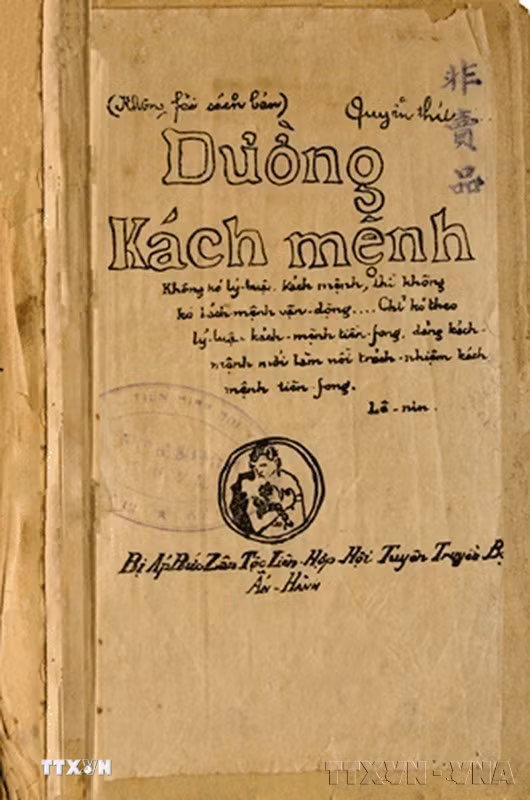 (Không fải sách bán)
Quyển thứ
非賣品
Đường
Kách mệnh
Không có lý-luận kách mệnh, thì không
có kách mệnh vận-động.... Chỉ có theo
lý-luận kách-mệnh tiên-fong, đảng kách-
mệnh mới làm nổi trách-nhiệm kách
mệnh tiên-fong.
Lê-nin.
Bị Áp Bức Zân Tộc Liên-Hợp-Hội Tuyên Truyền Bộ
Ấn-Hành
TTXVN
TTXVN-VNA